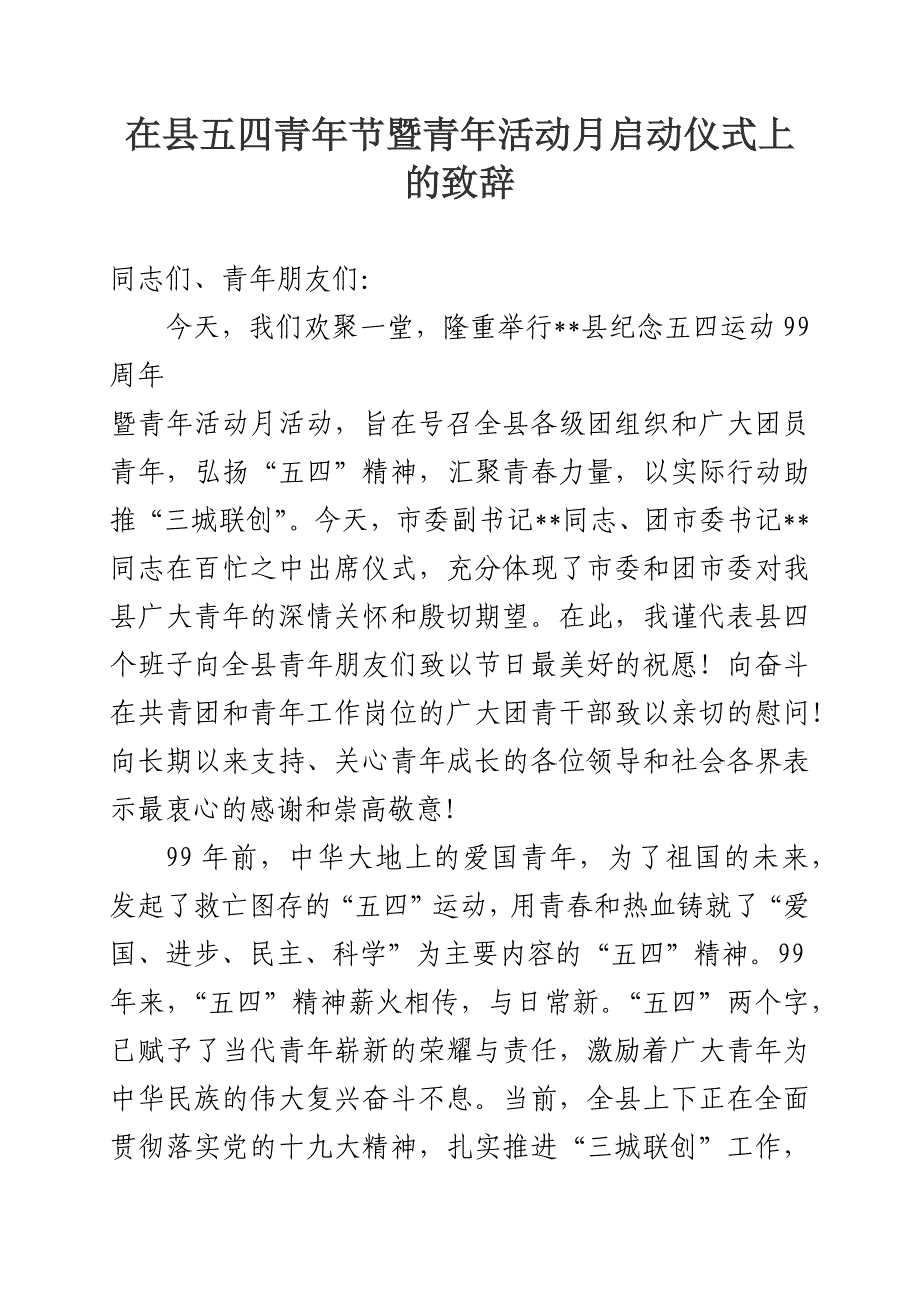 在县五四青年节暨青年活动月启动仪式上
的致辞
同志们、青年朋友们：
今天，我们欢聚一堂，隆重举行**县纪念五四运动 99
周年
暨青年活动月活动，旨在号召全县各级团组织和广大团员
青年，弘扬“五四”精神，汇聚青春力量，以实际行动助
推“三城联创”。今天，市委副书记**同志、团市委书记**
同志在百忙之中出席仪式，充分体现了市委和团市委对我
县广大青年的深情关怀和殷切期望。在此，我谨代表县四
个班子向全县青年朋友们致以节日最美好的祝愿！向奋斗
在共青团和青年工作岗位的广大团青干部致以亲切的慰问！
向长期以来支持、关心青年成长的各位领导和社会各界表
示最衷心的感谢和崇高敬意！
99 年前，中华大地上的爱国青年，为了祖国的未来，
发起了救亡图存的“五四”运动，用青春和热血铸就了“爱
国、进步、民主、科学”为主要内容的“五四”精神。99
年来，“五四”精神薪火相传，与日常新。“五四”两个字，
已赋予了当代青年崭新的荣耀与责任，激励着广大青年为
中华民族的伟大复兴奋斗不息。当前，全县上下正在全面
贯彻落实党的十九大精神，扎实推进“三城联创”工作，